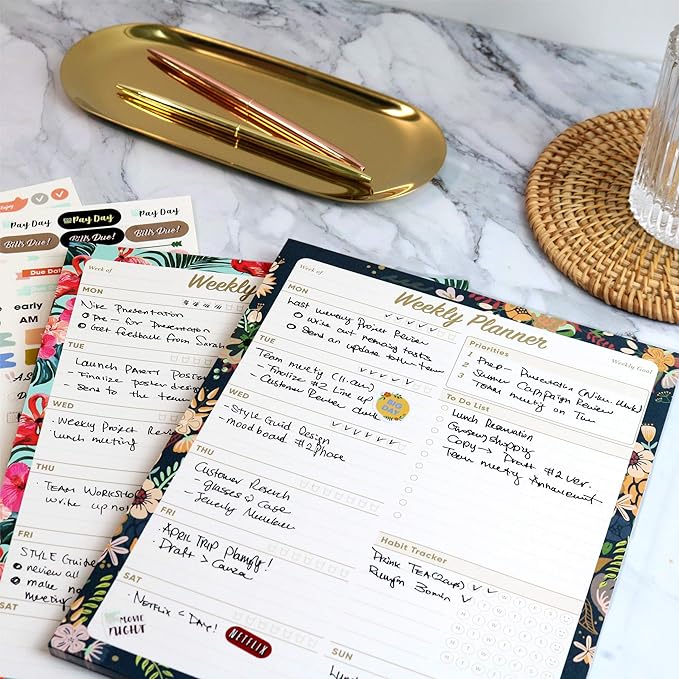 enjoy
Pay Day
Pay Day
Pay Day
Bills Due!
Bills Due!
Bills Due!
Due Date
early
AM
Week of
Weekly
MON
Nike Presentation
Pre - for Presentation
Get feedback from Sarah
TUE
Launch Party Poster
- Finalize poster design
- Send to the team
WED
- Weekly Project Rev
Lunch meeting
THU
- TEAM WORKSHOP
write up no
FRI
STYLE Guide
review all
make no
meeting
SAT
Week of
Weekly Planner
MON
Last memory Project Review
write out memory tasks
Send an update to the team
TUE
Team meety (11.am)
- Finalize #2 Line up
- Customer Review check
BIG DAY
WED
- Style Guid Design
- mood board #2 phase
THU
Customer Reserch
- glasses & Case
- Jewelry
FRI
- APRIL TRIP Planning!
Draft > Canva
SAT
- NETFLIX & Day!
MOVIE NIGHT
NETFLIX
Priorities
Weekly Goal
1 Prep - Presentation
2 Summer Campaign Review
3 Team meeting on Tue
To Do List
Lunch Reservation
Grocery shoppy
Copy -> Draft #2 ver.
Team meety
Habit Tracker
Drink TEA (2cups)
Runnyn 30min
M T W T F S S
SUN
Lunch